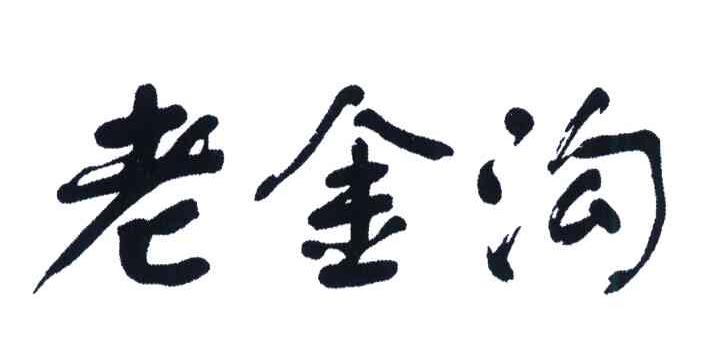 老金沟